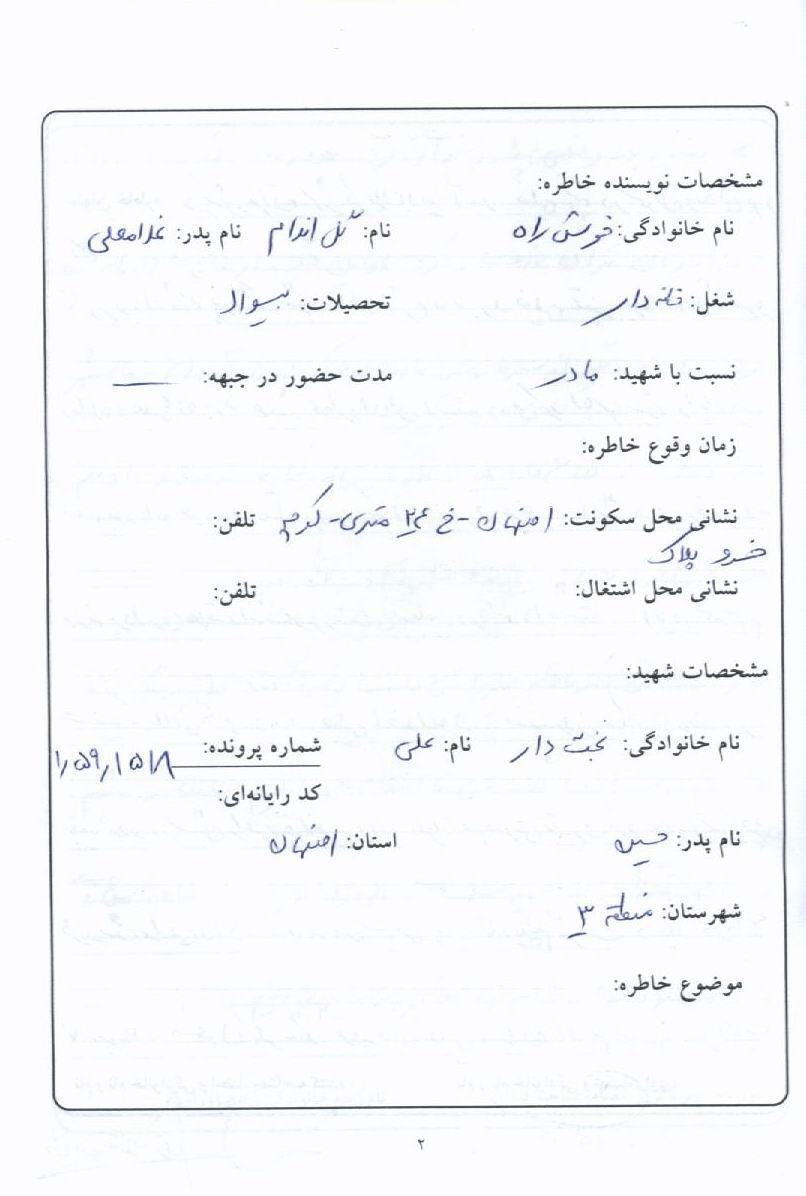 مشخصات نویسنده خاطره:
نام خانوادگی: خوش راه نام: گل اندام نام پدر: غلامعلی
شغل: خانه دار تحصیلات: بیسواد
نسبت با شهید: مادر مدت حضور در جبهه: ــــ
زمان وقوع خاطره:
نشانی محل سکونت: اصفهان - خ ۲۴ متری - کوی تلفن:
خسرو پلاک
نشانی محل اشتغال: تلفن:
مشخصات شهید:
نام خانوادگی: بخت دار نام: علی شماره پرونده: ۱٫۵۹٫۱۵۱۸
کد رایانه‌ای:
نام پدر: حسین استان: اصفهان
شهرستان: منطقه ۳
موضوع خاطره:
۲